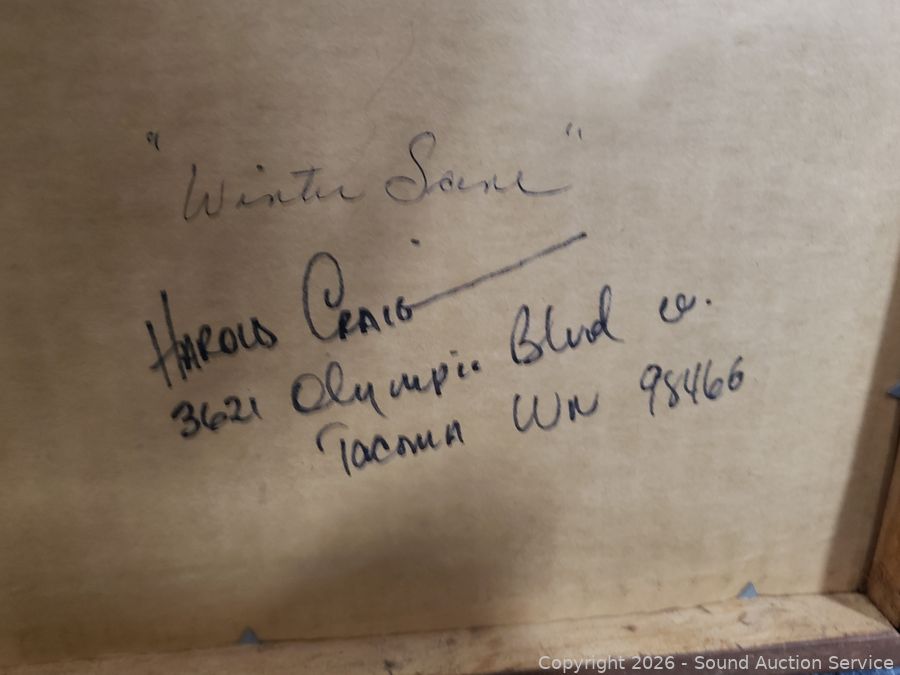 "Winter Scene"
Harold Craig
3621 Olympic Blvd W.
Tacoma WN 98466
Copyright © 2026 - Sound Auction Service